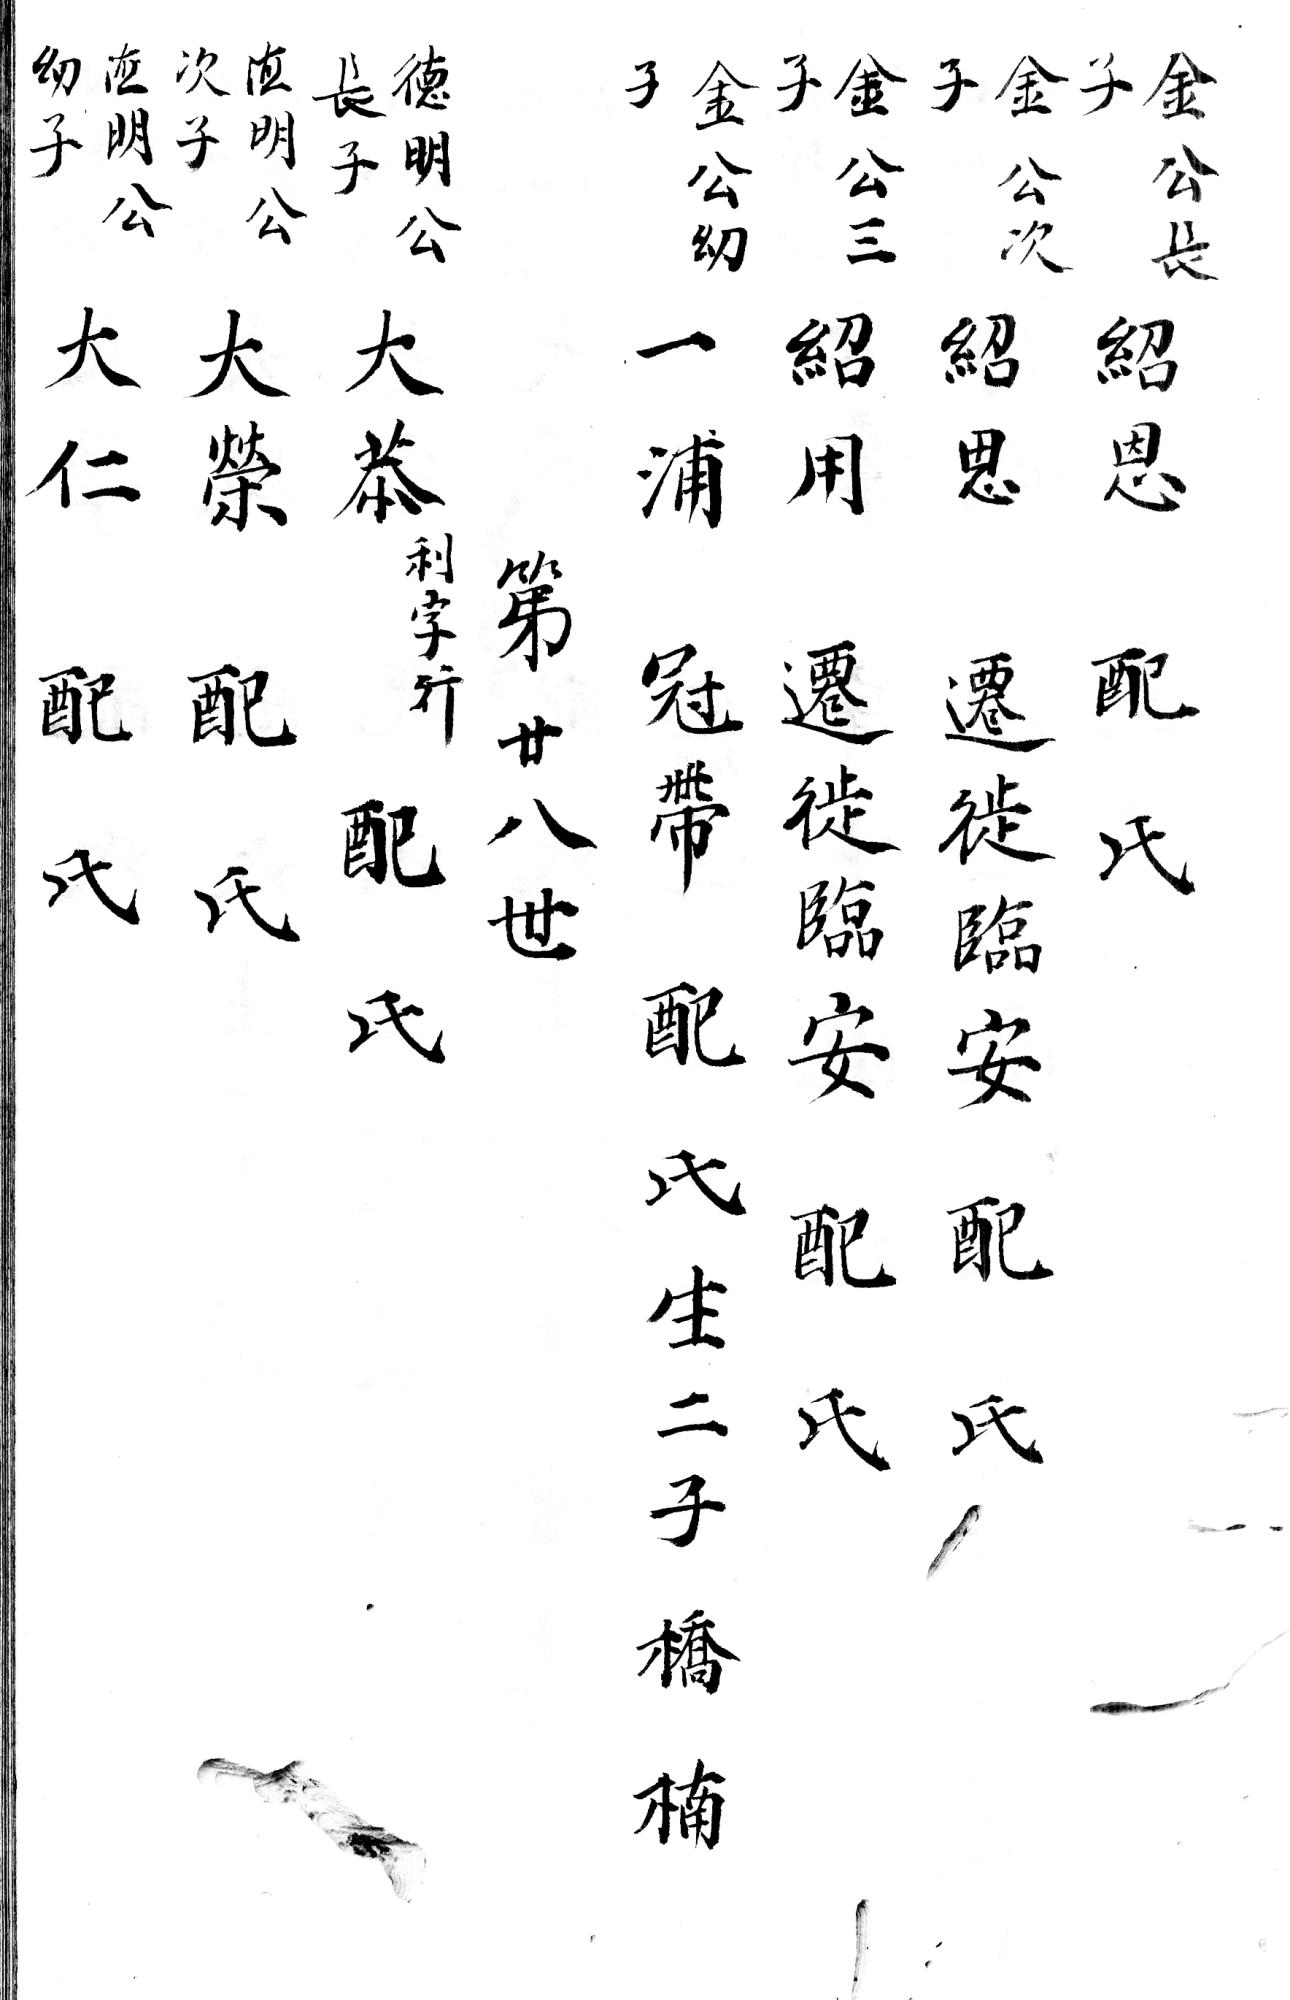 金公長子 紹恩 配 氏
金公次子 紹思 遷徙臨安 配 氏
金公三子 紹用 遷徙臨安 配 氏
金公幼子 一浦 冠帶 配 氏生二子 橋 楠
第廿八世
德明公長子 大恭 利字行 配 氏
直明公次子 大榮 配 氏
直明公幼子 大仁 配 氏